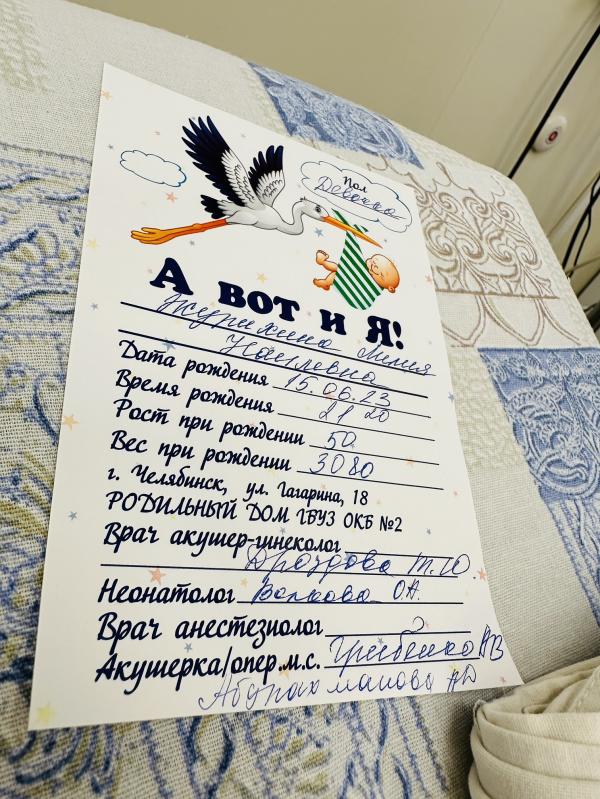 Пол
Девочка
А вот и Я!
Журихина
Дата рождения 15.06.23
Время рождения 21 20
Рост при рождении 50
Вес при рождении 3080
г. Челябинск, ул. Гагарина, 18
РОДИЛЬНЫЙ ДОМ ГБУЗ ОКБ №2
Врач акушер-гинеколог
Дроздова Т.Ю.
Неонатолог Волкова О.А.
Врач анестезиолог
Акушерка/опер.м.с. Грибенко
Абдрахманова АД